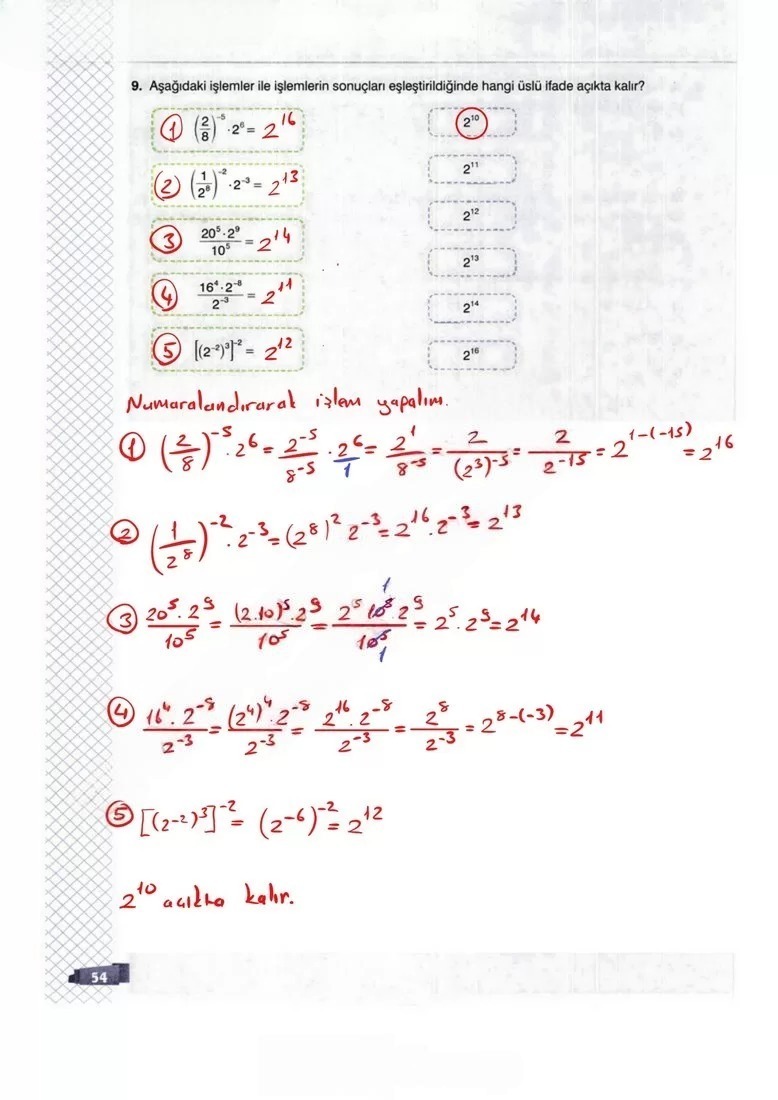 9. Aşağıdaki işlemler ile işlemlerin sonuçları eşleştirildiğinde hangi üslü ifade açıkta kalır?
① (2/8)⁻⁵ · 2⁶ = 2¹⁶
2¹⁰
② (1/2⁸)⁻² · 2⁻³ = 2¹³
2¹¹
2¹²
③ 20⁵ · 2⁹ / 10⁵ = 2¹⁴
2¹³
④ 16⁴ · 2⁻⁸ / 2⁻³ = 2¹¹
2¹⁴
⑤ [(2⁻²)³]⁻² = 2¹²
2¹⁶
Numaralandırarak işlem yapalım.
① (2/8)⁻⁵ · 2⁶ = 2⁻⁵/8⁻⁵ · 2⁶/1 = 2¹/8⁻⁵ = 2/(2³)⁻⁵ = 2/2⁻¹⁵ = 2¹⁻⁽⁻¹⁵⁾ = 2¹⁶
② (1/2⁸)⁻² · 2⁻³ = (2⁸)² 2⁻³ = 2¹⁶ · 2⁻³ = 2¹³
③ 20⁵ · 2⁹ / 10⁵ = (2.10)⁵ · 2⁹ / 10⁵ = 2⁵ 10⁵ · 2⁹ / 10⁵ = 2⁵ · 2⁹ = 2¹⁴
④ 16⁴ · 2⁻⁸ / 2⁻³ = (2⁴)⁴ · 2⁻⁸ / 2⁻³ = 2¹⁶ · 2⁻⁸ / 2⁻³ = 2⁸/2⁻³ = 2⁸⁻⁽⁻³⁾ = 2¹¹
⑤ [(2⁻²)³]⁻² = (2⁻⁶)⁻² = 2¹²
2¹⁰ açıkta kalır.
54